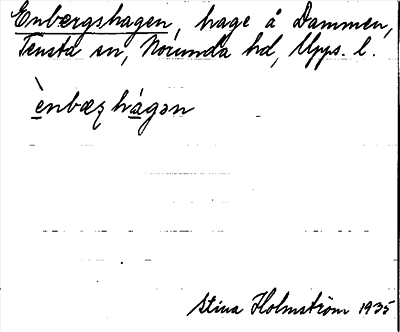 Enbergshagen, hage å Dammen,
Tensta sn, Norunda hd, Upps. l.
ènbæʀ hágən
Stina Holmström 1935